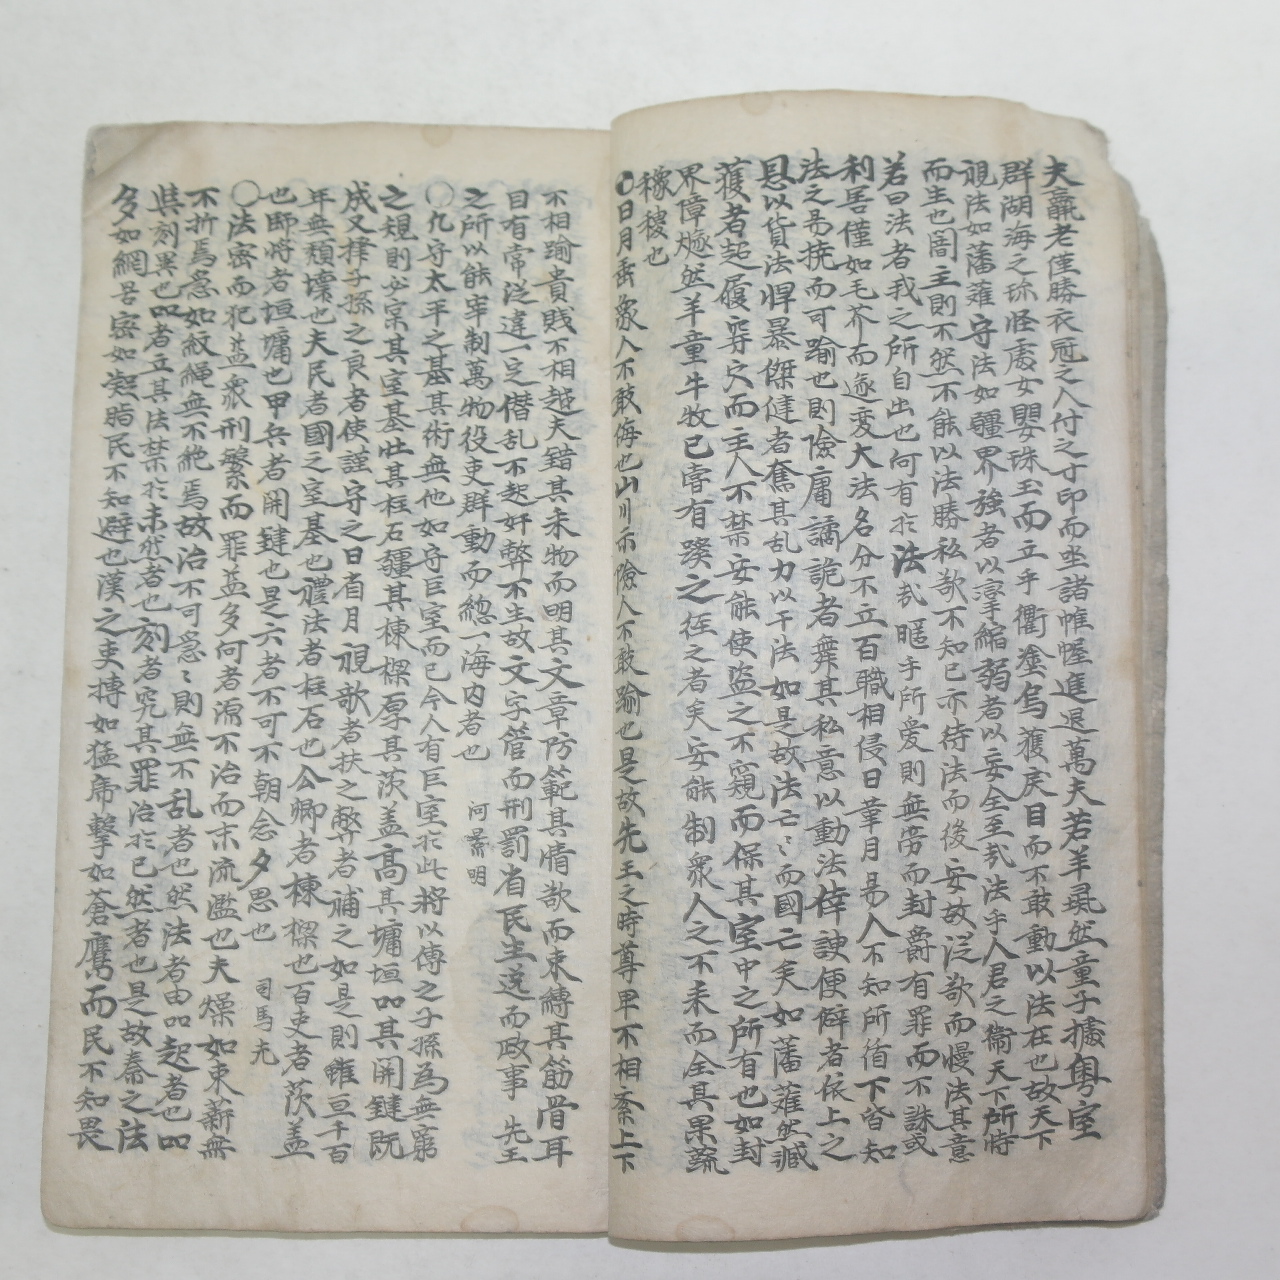 夫羸老僅勝衣冠之人付之寸印而坐諸帷幄進退萬夫若羊彘然童子據奧室
群湖海之珎怪處女嬰珠玉而立乎衢塗烏獲戾目而不敢動以法在也故天下
視法如藩籬守法如疆界強者以淳縮弱者以妥全至㢤法乎人君之衛天下所恃
而生也闇主則不然不能以法勝私欲不知已亦待法而後安故泛欲而慢法其意
若曰法者我之所自出也何有於法㢤暱乎所爱則無劳而封爵有罪而不誅或
利害僅如毛芥而遂变大法名分不立百職相侵日華月易人不知所循下皆知
法之易撓而可踰也則險庸譎詭者舞其私意以動法倖諛便僻者依上之
恩以貸法悍暴傑健者奮其乱力以干法如是故法亡〻而國亡矣如藩籬然臧
獲者起履穿穴而主人不禁安能使盜之不窺而保其室中之所有也如封
界障燧然羊童牛牧已嘗有蹊之徃之者矣安能制衆人之不来而全其果蔬
稼穡也
○日月垂象人不敢侮也山川示險人不敢踰也是故先王之時尊卑不相紊上下
不相踰貴賤不相越夫錯其釆物而明其文章防範其情欲而束縛其筋骨耳
目有常従違一定僭乱不起奸弊不生故文字管而刑罰省民生遂而政事 先王
之所以能宰制萬物役吏群動而緫一海内者也 河景明
○凢守太平之基其術無他如守巨室而已今人有巨室於此将以傳之子孫為無窮
之規則必実其室基壮其柱石疆其棟樑厚其茨盖高其墉垣固其関鍵既
成又擇子孫之良者使謹守之日省月視欹者扶之弊者補之如是則雖亘千百
年無頹壊也夫民者國之室基也禮法者柱石也公卿者棟樑也百吏者茨盖
也師将者垣墉也甲兵者関鍵也是六者不可不朝念夕思也 司馬光
○法密而犯盖衆刑繁而罪盖多何者源不治而末流濫也夫燥如束薪無
不折焉急如紋繩無不絶焉故治不可急〻則無不乱者也然法者由固起者也固
與刻異也固者立其法禁於未然者也刻者究其罪治於已然者也是故秦之法
多如網罟密如凝脂民不知避也漢之吏搏如猛虎撃如蒼鷹而民不知畏